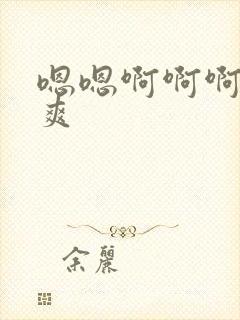 嗯嗯啊啊啊
爽
余丽